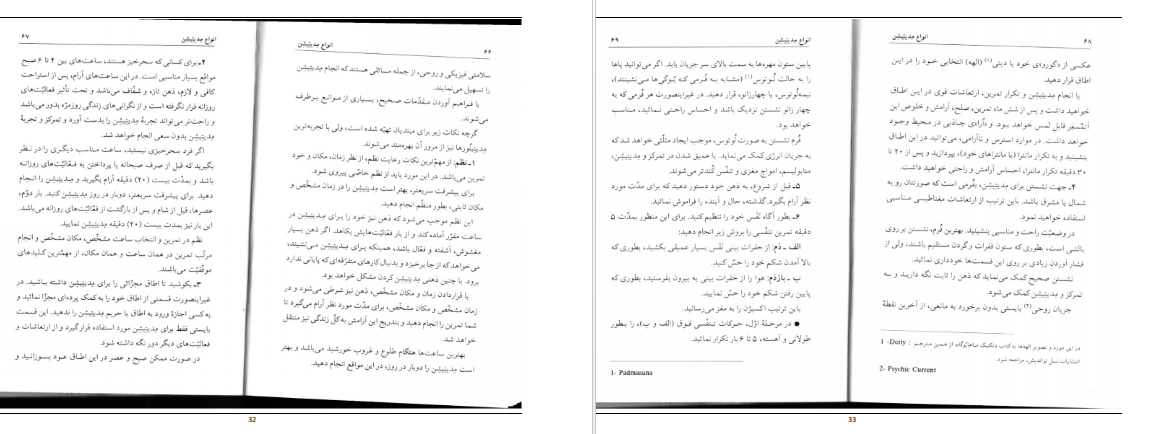 ۶۶
انواع مِدیتِیشِن
سلامتی فیزیکی و روحی، از جمله مسائلی هستند که انجام مِدیتِیشِن
را تسهیل می‌نمایند.
با فـراهـم آوردن مـقدّمات صـحیح، بسـیاری از مـوانـع بـرطرف
می‌شوند.
گرچه نکات زیر برای مبتدیان تهیّه شده است، ولی با تجربه‌ترین
مِدیتِیتُورها نیز از مرور آن بهره‌مند می‌شوند.
۱ـ نظم: از مهمّ‌ترین نکات رعایت نظم، از نظر زمان، مکان و خود
تمرین می‌باشد. در این مورد باید از نظم خاصّی پیروی شود.
برای پیشرفت سریعتر، بهتر است مِدیتِیشِن را در زمان مشخّص و
مکان ثابتی، بطور منظّم انجام دهید.
این نظم موجب می‌شود که ذهن نیز خود را بـرای مِـدیتِیشِن در
ساعت مقرّر آماده کند و از بار فعّالیّت‌هایش بکاهد. اگر ذهن بسیار
مغشوش، آشفته و فعّال باشد، همینکه بـرای مِـدیتِیشِن مـی‌نشیند،
می‌خواهد که از جا برخیزد و بدنبال کارهای متفرّقه‌ای که پایانی ندارد
برود. با چنین ذهنی مِدیتِیشِن کردن مشکل خواهد بود.
با قراردادن زمان و مکان مشخّص، ذهن نیز شرطی می‌شود و در
زمان مشخّص و مکان مشخّص، برای مدّت مورد نظر آرام می‌گیرد تا
شما تمرین را انجام دهید و بتدریج این آرامش به کلّ زندگی نیز منتقل
خواهد شد.
بهترین ساعت‌ها هنگام طلوع و غروب خورشید می‌باشد و بهتر
است مِدیتِیشِن را دوبار در روز، در این مواقع انجام دهید.
انواع مِدیتِیشِن
۶۷
۲ـ برای کسانی که سحرخیز هستند، ساعت‌های بین ۴ تا ۶ صبح
مواقع بسیار مناسبی است. در این ساعت‌های آرام، پس از استراحت
کافی و لازم، ذهن تازه و شفّاف می‌باشد و تحت تأثیر فعّالیّت‌های
روزانه قرار نگرفته است و از نگرانی‌های زندگی روزمرّه بدور می‌باشد
و راحت‌تر می‌تواند تجربهٔ مِدیتِیشِن را بدست آورد و تمرکز و تجربهٔ
مِدیتِیشِن بدون سعی انجام خواهد شد.
اگر فرد سحرخیزی نیستید، ساعت مـناسب دیگـری را در نـظر
بگیرید که قبل از صرف صبحانه یا پرداختن به فعـّالیّت‌های روزانـه
باشد و بمدّت بیست (۲۰) دقیقه آرام بگیرید و مِـدیتِیشِن را انـجام
دهید. برای پیشرفت سریعتر، دوبار در روز مِدیتِیشِن کنید. بار دوّم،
عصرها، قبل از شام و پس از بازگشت از فعّالیّت‌های روزانه می‌باشد.
این بار نیز بمدت بیست (۲۰) دقیقه مِدیتِیشِن نمایید.
نظم در تمرین و انتخاب ساعت مشخّص، مکان مشخّص و انجام
مرتّب تمرین در همان ساعت و همان مکان، از مهمّترین کـلیدهای
موفّقیّت می‌باشند.
۳ـ بکوشید تا اطاق مجزّائی را برای مِدیتِیشِن داشته بـاشید. در
غیراینصورت قسمتی از اطاق خود را به کمک پرده‌ای مجزّا نمائید و
به کسی اجازهٔ ورود به اطاق یا حریم مِدیتِیشِن را ندهید. این قسمت
بایستی فقط برای مِدیتِیشِن مورد استفاده قرارگیرد و از ارتعاشات و
فعالیّت‌های دیگر دور نگه داشته شود.
در صورت ممکن صبح و عصر در این اطاق عـود بسـوزانـید و
32
۶۸
انواع مِدیتِیشِن
عکسی از «گورو»ی خود یا دیتی (۱) (الهه) انتخابی خـود را در ایـن
اطاق قرار دهید.
با انجام مِدیتِیشِن و تکرار تمرین، ارتعاشات قوی در ایـن اطـاق
خواهید داشت و پس از شش ماه تمرین، صلح، آرامش و خلوص این
اَتمُسفر قابل لمس خواهد بـود. و «اُرا»ی جـاذبی در مـحیط وجـود
خواهد داشت. در موارد استرس و ناآرامی، می‌توانید در این اطـاق
بنشینید و به تکرار مانترا (یا مانتراهای خود)، بپردازید و پس از ۲۰ تا
۳۰ دقیقه تکرار مانترا، احساس آرامش و راحتی خواهید داشت.
۴ـ جهت نشستن برای مِدیتِیشِن، بِفُرمی است که صورتتان رو به
شمال یا مشرق باشد. باین ترتیب از ارتعاشات مغناطیسی مـناسبی
استفاده خواهید نمود.
در وضعیّت راحت و مناسبی بنشینید. بهترین فُرم، نشستن بر روی
بالشی است، بطوری‌که ستون فقرات و گردن مستقیم باشند، ولی از
فشار آوردن زیادی بر روی این قسمت‌ها خودداری نمائید.
نشستن صحیح کمک می‌نماید که ذهن را ثابت نگه داریـد و بـه
تمرکز و مِدیتِیشِن کمک می‌شود.
جریان روحی (۲) بایستی بدون برخورد به مانعی، از آخرین نقطهٔ
1 -Deity : در این مورد و تصویر الهه‌ها به کتاب «تکنیک مـاهایُوگا»، از همین مترجم
انتشارات نسل نواندیش، مراجعه شود.
2- Psychic Current
انواع مِدیتِیشِن
۶۹
پایین ستون مهره‌ها به سمت بالای سر جریان یابد. اگر می‌توانید پاها
را به حالت لُوتوس (۱) (مشـابه بـه فُـرمی کـه یُـوگی‌ها مـی‌نشینند)،
نیمه‌لُوتوس، یا چهارزانو، قرار دهید. در غیراینصورت هر فُرمی که به
چهار زانو نشستن نزدیک باشد و احساس راحـتی نـمائید، مـناسب
خواهد بود.
فُرم نشستن به صورت لُوتوس، موجب ایجاد مثلّثی خواهد شد که
به جریان انرژی کمک می‌نماید. با عمیق شدن در تمرکز و مِدیتِیشِن،
متابولیسم، امواج مغزی و تنفّس کُندتر می‌شوند.
۵ـ قبل از شروع، به ذهن خود دستور دهید که برای مدّت مورد
نظر آرام بگیرد. گذشته، حال و آینده را فراموش نمائید.
۶ـ بطور آگاه نَفَس خود را تنظیم کنید. برای این منظور بمدّت ۵
دقیقه تمرین تنفّسی را بروش زیر انجام دهید:
الف ـ دَم: از حفرات بینی نَفَس بسیار عمیقی بکشید، بطوری که
بالا آمدن شکم خود را حسّ کنید.
ب ـ بازدَم: هوا را از حفرات بینی به بیرون بفرستید، بطوری که
پایین رفتن شکم خود را حسّ نمایید.
باین ترتیب اکسیژن را به مغز می‌رسانید.
● در مرحـلهٔ اوّل، حـرکات تنـفّسی فـوق (الف و ب)، را بـطور
طولانی و آهسته، ۵ تا ۶ بار تکرار نمائید.
1- Padmasana
33